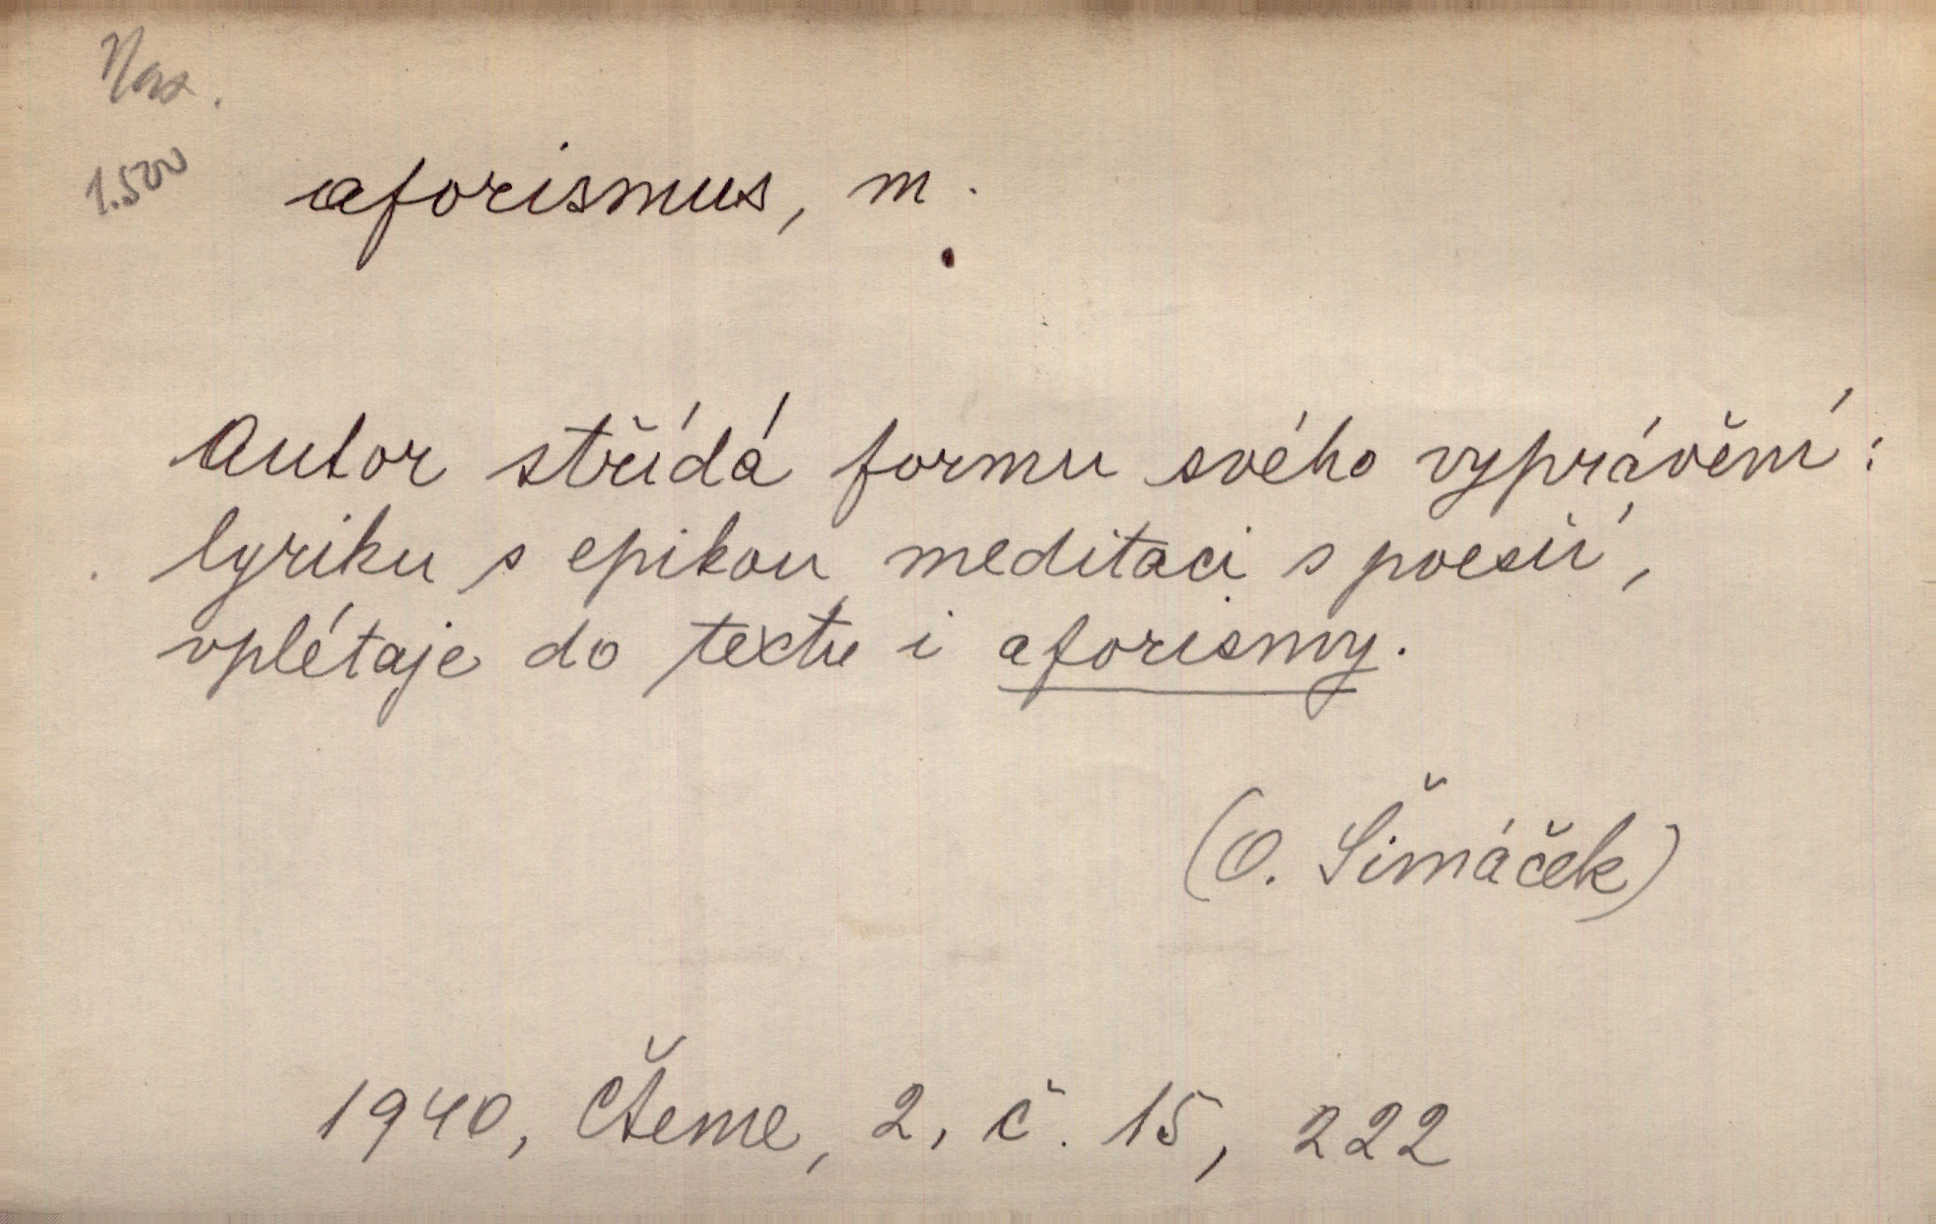 1.500
aforismus, m.
Autor střídá formu svého vyprávění:
lyriku s epikou, meditaci s poesií,
vplétaje do textu i aforismy.
(O. Šimáček)
1940, Čteme, 2, č. 15, 222